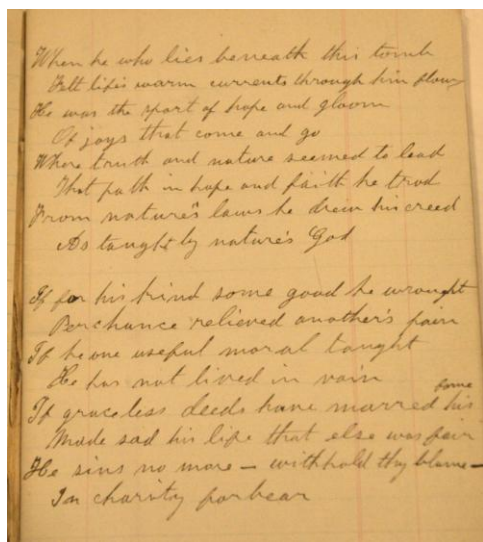 When he who lies berneath this tomb
Felt life's warm currents through him flow,
He was the sport of hope and gloom
Of joys that come and go
Where truth and nature seemed to lead
That path in hope and faith he trod
From nature's laws he drew his creed
As taught by nature's God
If for his kind some good he wrought
Perchance relieved another's pain
If he one useful moral taught
He has not lived in vain
fame
If graceless deeds have marred his
Made sad his life that else was fair
He sins no more – withhold thy blame –
In charity forbear